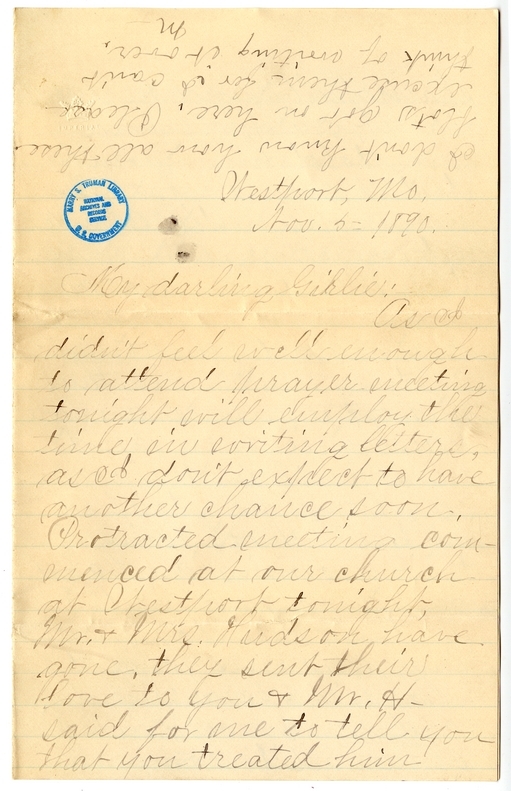 I don't know how all these
blots got on here, Please
excuse them for I can't
think of writing it over.
M
HARRY S. TRUMAN LIBRARY
NATIONAL
ARCHIVES AND
RECORDS
SERVICE
U. S. GOVERNMENT
Westport, Mo.
Nov. 5= 1890.
My darling Girlie:
As I
didn't feel well enough
to attend prayer meeting
tonight will employ the
time in writing letters,
as I don't expect to have
another chance soon.
Protracted meeting com-
menced at our church
at Westport tonight,
Mr. & Mrs. Hudson have
gone, they sent their
love to you & Mr. H-
said for me to tell you
that you treated him